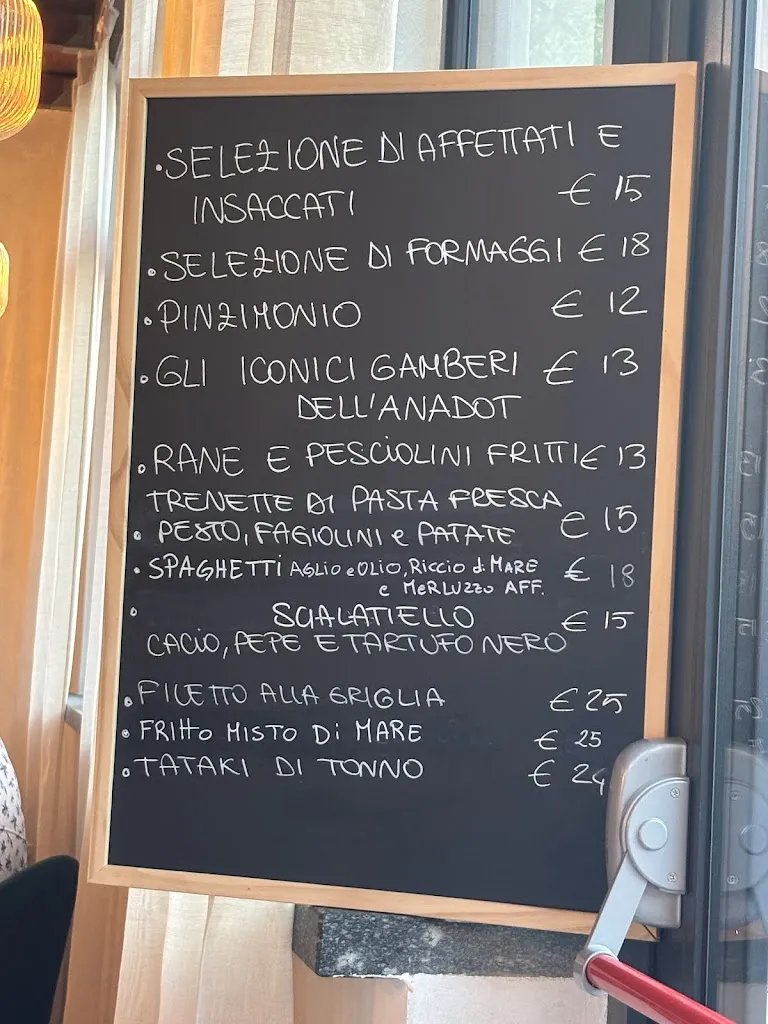 • SELEZIONE DI AFFETTATI E
INSACCATI € 15
• SELEZIONE DI FORMAGGI € 18
• PINZIMONIO € 12
• GLI ICONICI GAMBERI € 13
DELL'ANADOT
• RANE E PESCIOLINI FRITTI € 13
TRENETTE DI PASTA FRESCA
• PESTO, FAGIOLINI e PATATE € 15
• SPAGHETTI AGLIO e OLIO, RICCIO di MARE € 18
e MERLUZZO AFF.
• SCIALATIELLO € 15
CACIO, PEPE E TARTUFO NERO
• FILETTO ALLA GRIGLIA € 25
• FRITTO MISTO Di MARE € 25
• TATAKI DI TONNO € 24